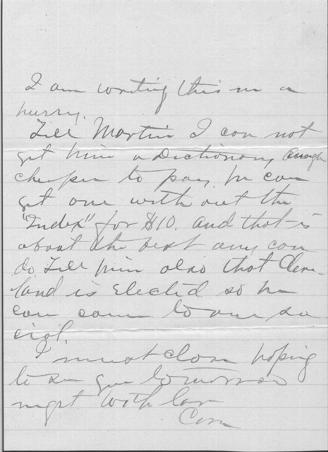 I am writing this in a
hurry.
Tell Martin I can not
get him a Dictionary enough
cheaper to pay. he can
get one with out the
"Index" for $10. and that is
about the best any can
do, Tell him also that Cleve
land is Elected so he
can come to our so
cial.
I must close hoping
to see you tomorrow
night with love